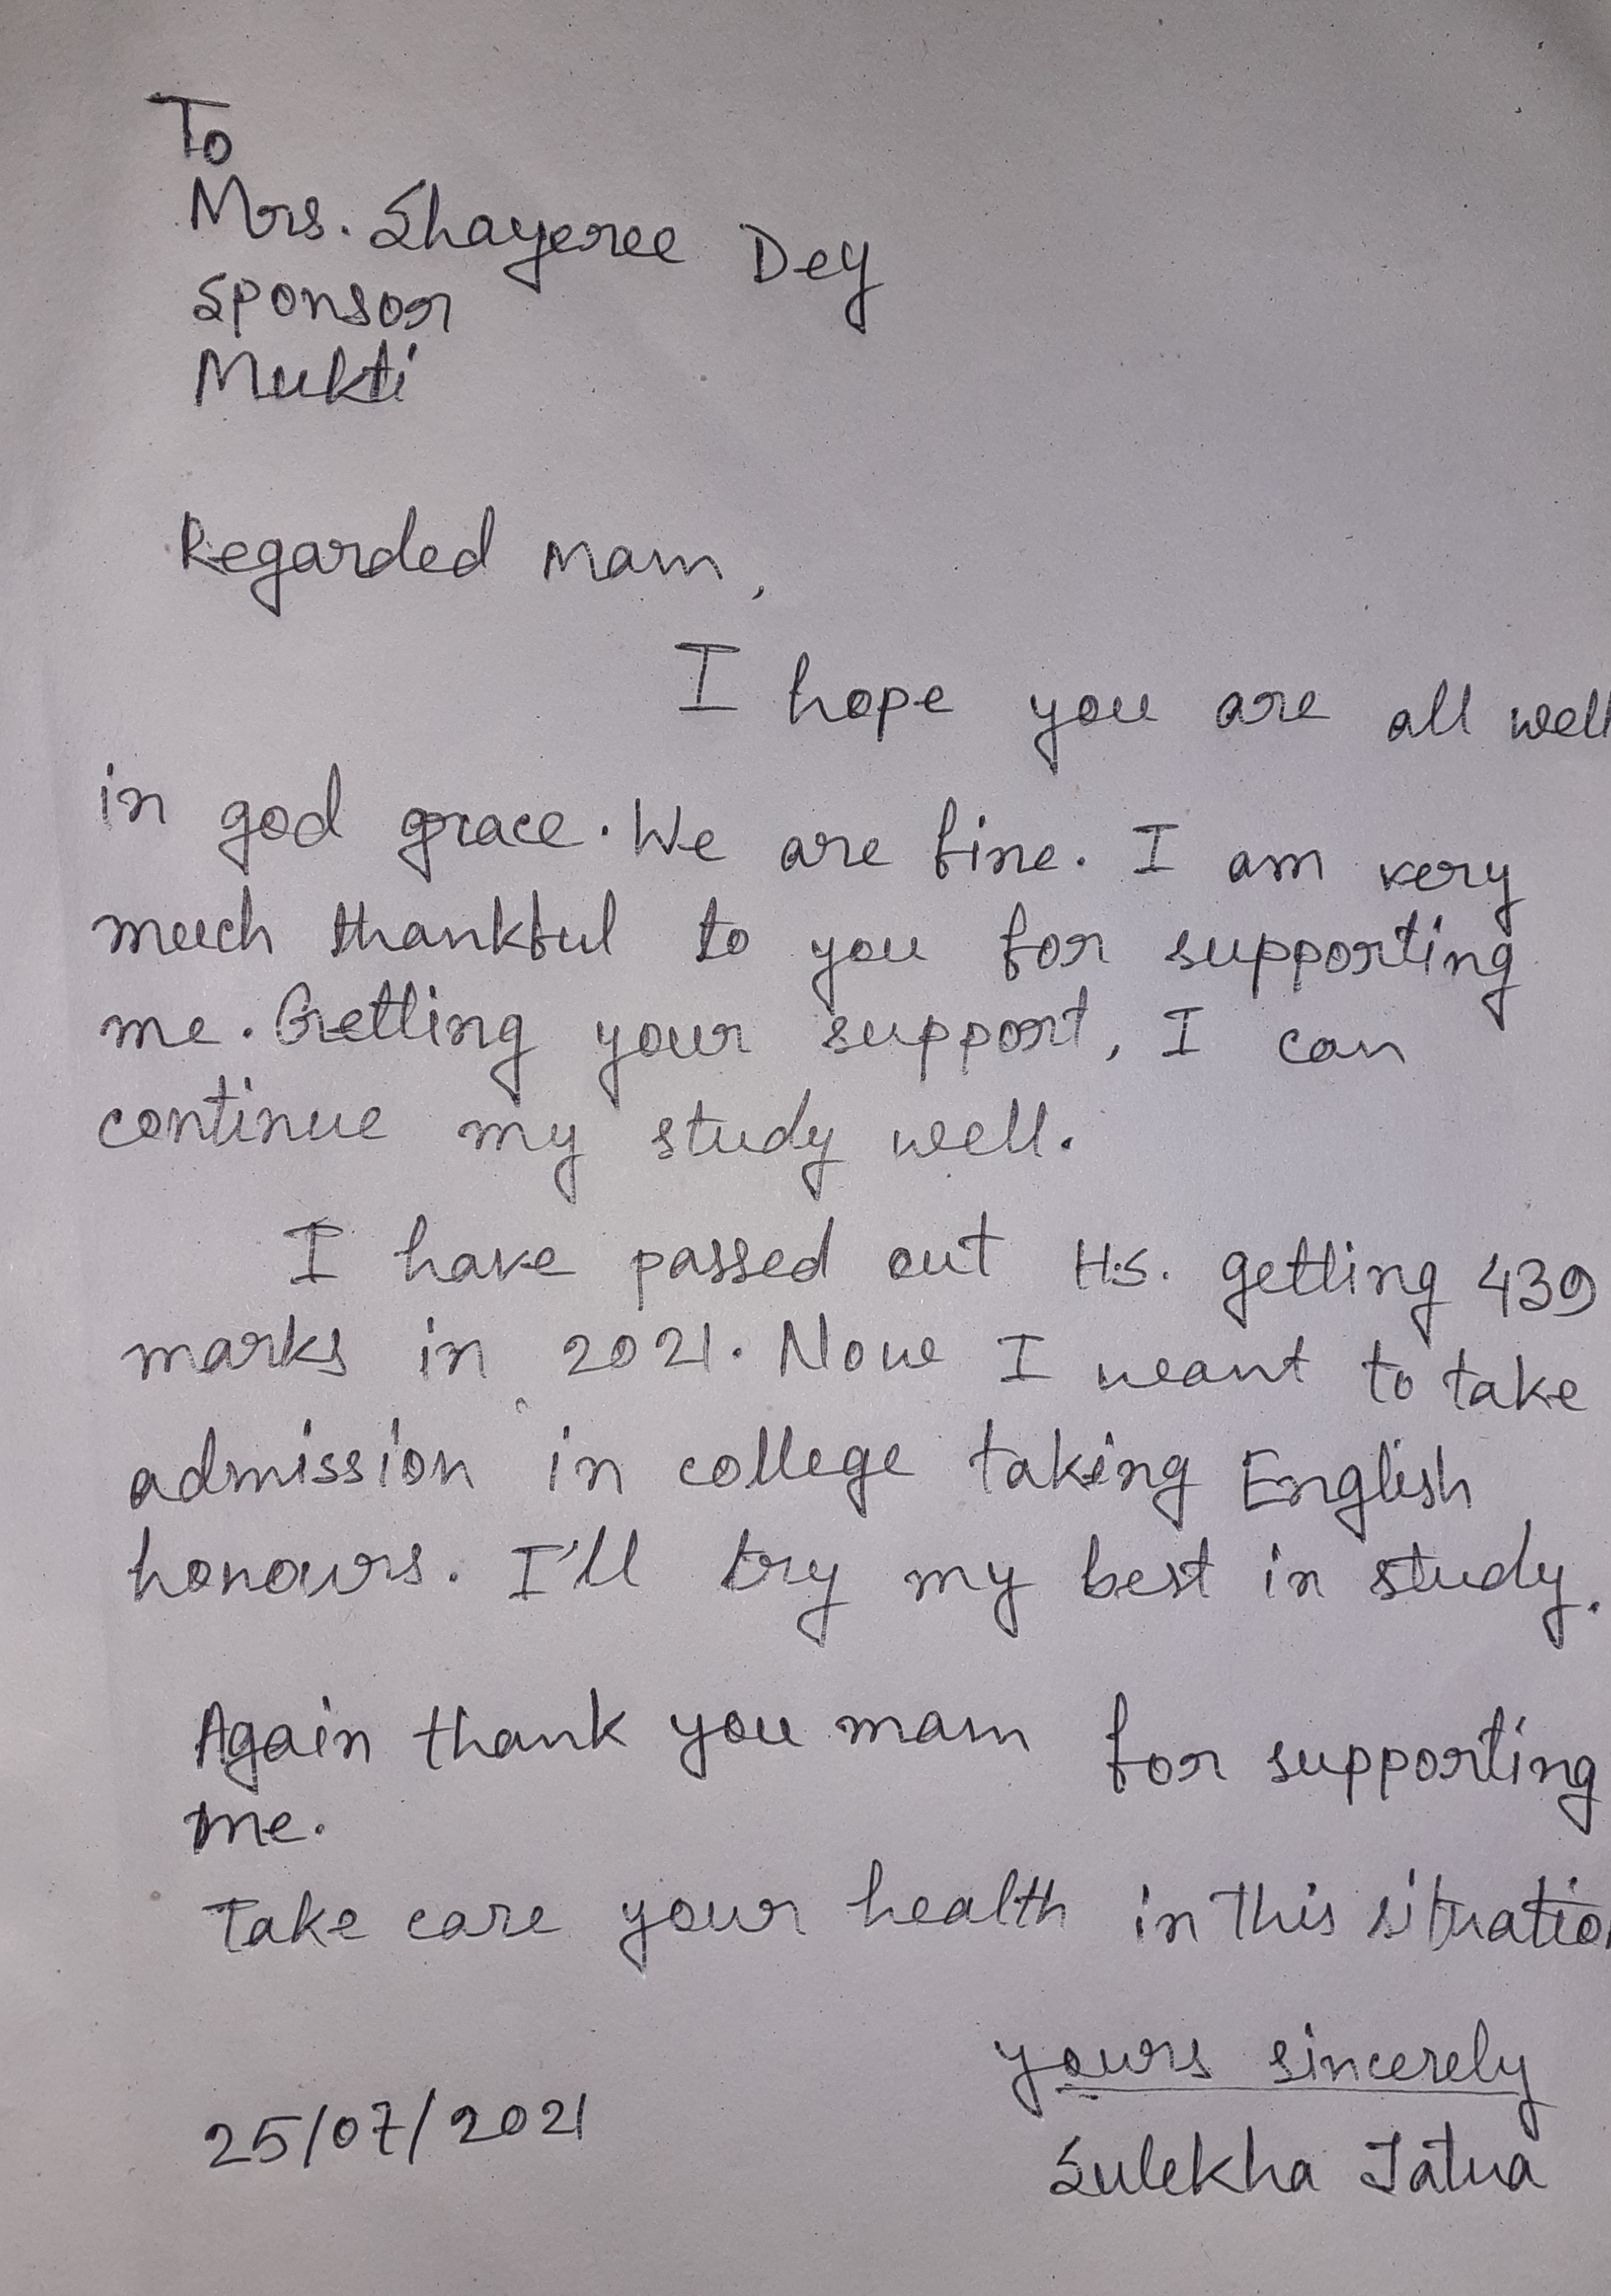 To
Mrs. Shayeree Dey
Sponsor
Mukti
Regarded Mam,
I hope you are all well
in god grace. We are fine. I am very
much thankful to you for supporting
me. Getting your support, I can
continue my study well.
I have passed out H.S. getting 439
marks in 2021. Now I want to take
admission in college taking English
honours. I'll try my best in study.
Again thank you mam for supporting
me.
Take care your health in this situation
yours sincerely
25/07/2021
Sulekha Jatua